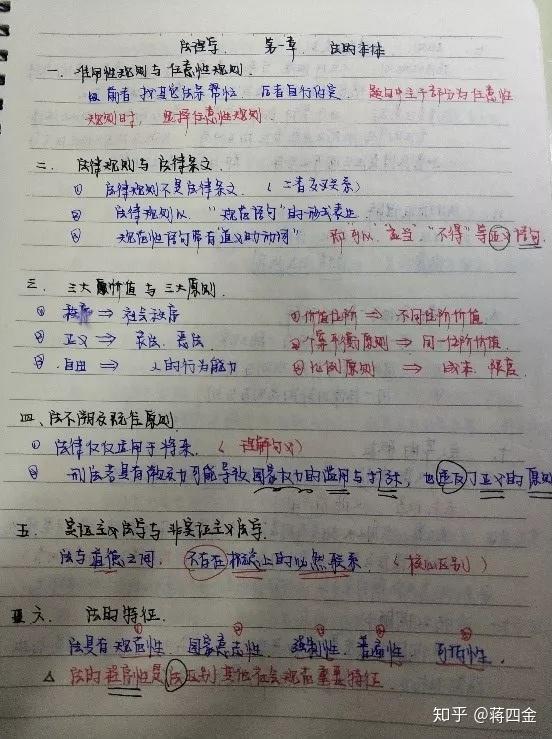 法理学 第一章 法的本体
一、准用性规则与任意性规则.
前者找其它法条帮忙 后者自行约定. 题目中主干部分为任意性
规则时, 选择任意性规则
二、法律规则与法律条文.
① 法律规则不是法律条文. (二者交叉关系)
② 法律规则以“规范语句”的形式表达
③ 规范性语句带有“道义助动词” 即可以“应当”“不得”等道义语句.
三、三大原价值与三大原则.
① 秩序 ⇒ 社会秩序 ①价值位阶 ⇒ 不同位阶价值.
② 正义 ⇒ 良法、恶法 ②个案平衡原则 ⇒ 同一位阶价值.
③ 自由 ⇒ 人的行为能力 ③比例原则 ⇒ 成本、限度.
四、法不溯及既往原则.
① 法律仅仅适用于将来. (理解句义)
② 刑法若具有溯及力可能导致国家权力的滥用与扩张, 也违反了正义的原则
五. 实证主义法学与非实证主义法学.
法与道德之间, 不存在概念上的必然联系. (核心区别)
六. 法的特征.
法具有规范性 国家意志性 强制性 普遍性 可诉性.
△ 法的程序性是法区别其他社会规范重要特征
知乎 @蒋四金